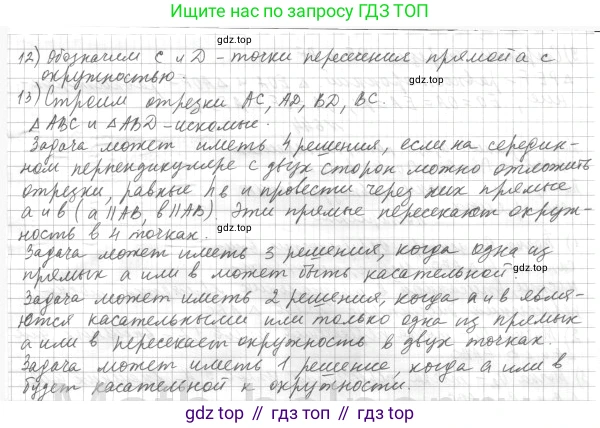 Ищите нас по запросу ГДЗ ТОП
12) Обозначим C и D - точки пересечения прямой a с
окружностью.
13) Строим отрезки AC, AD, BD, BC.
△ABC и △ABD - искомые.
Задача может иметь 4 решения, если на середин-
ном перпендикуляре с двух сторон можно отложить
отрезки, равные h в и провести через них прямые
a и в (a || AB, в || AB). Эти прямые пересекают окруж-
ность в 4 точках.
Задача может иметь 3 решения, когда одна из
прямых a или в может быть касательной.
Задача может иметь 2 решения, когда a и в явля-
ются касательными или только одна из прямых
a или в пересекает окружность в двух точках.
Задача может иметь 1 решение, когда a или в
будет касательной к окружности.
gdz.top
gdz.top
gdz.top
gdz.top
gdz top // гдз топ // gdz top // гдз топ